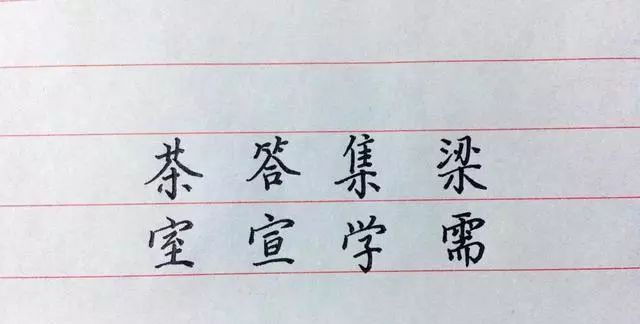 茶答集梁
室宣学需